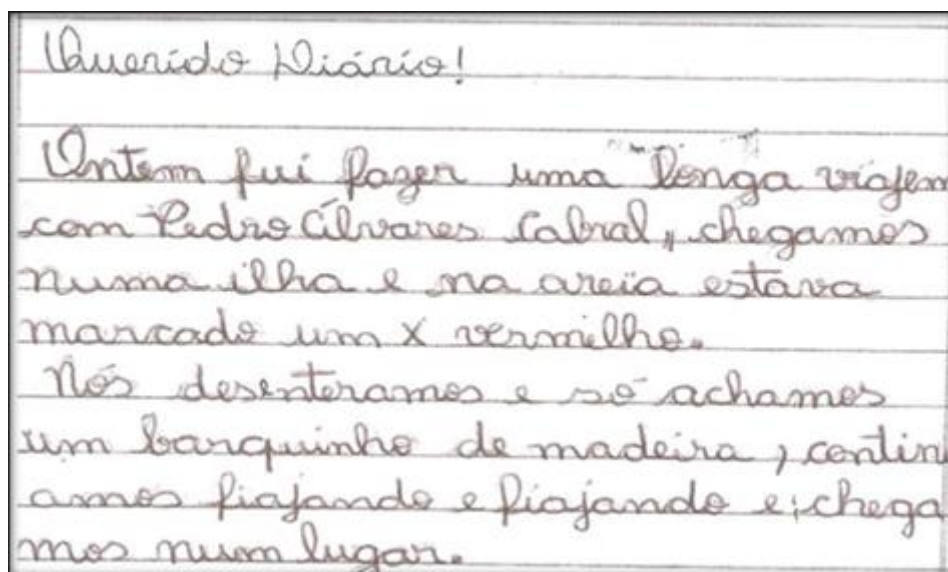 Querido Diário!
Ontem fui fazer uma longa viajem
com Pedro Álvares Cabral, chegamos
numa ilha e na areia estava
marcado um X vermilho.
Nós desenteramos e só achamos
um barquinho de madeira, contin
amos fiajando e fiajando e; chega
mos num lugar.